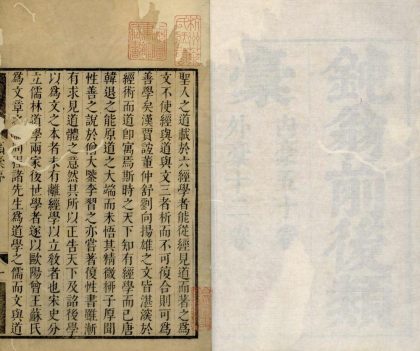 聖人之道載於六經學者能從經見道而著之爲
文不使經與道與文三者析而不可復合則可爲
善學矣漢賈誼董仲舒劉向揚雄之文皆湛深於
經術而道卽寓焉斯時之天下知有經學而已唐
韓退之能原道之大端而未悟其精微穪子厚聞
性善之說於僧大鑒李習之亦嘗著復性書雖漸
有求見道體之意然其所以正告天下及詒後學
以爲文之本者未有離經學以立敎者也宋史分
立儒林道學兩家後世學者遂以歐陽曾王蘇氏
爲文章
程諸先生爲道學之儒而文與道
鈍翁前後類
稾
外
十